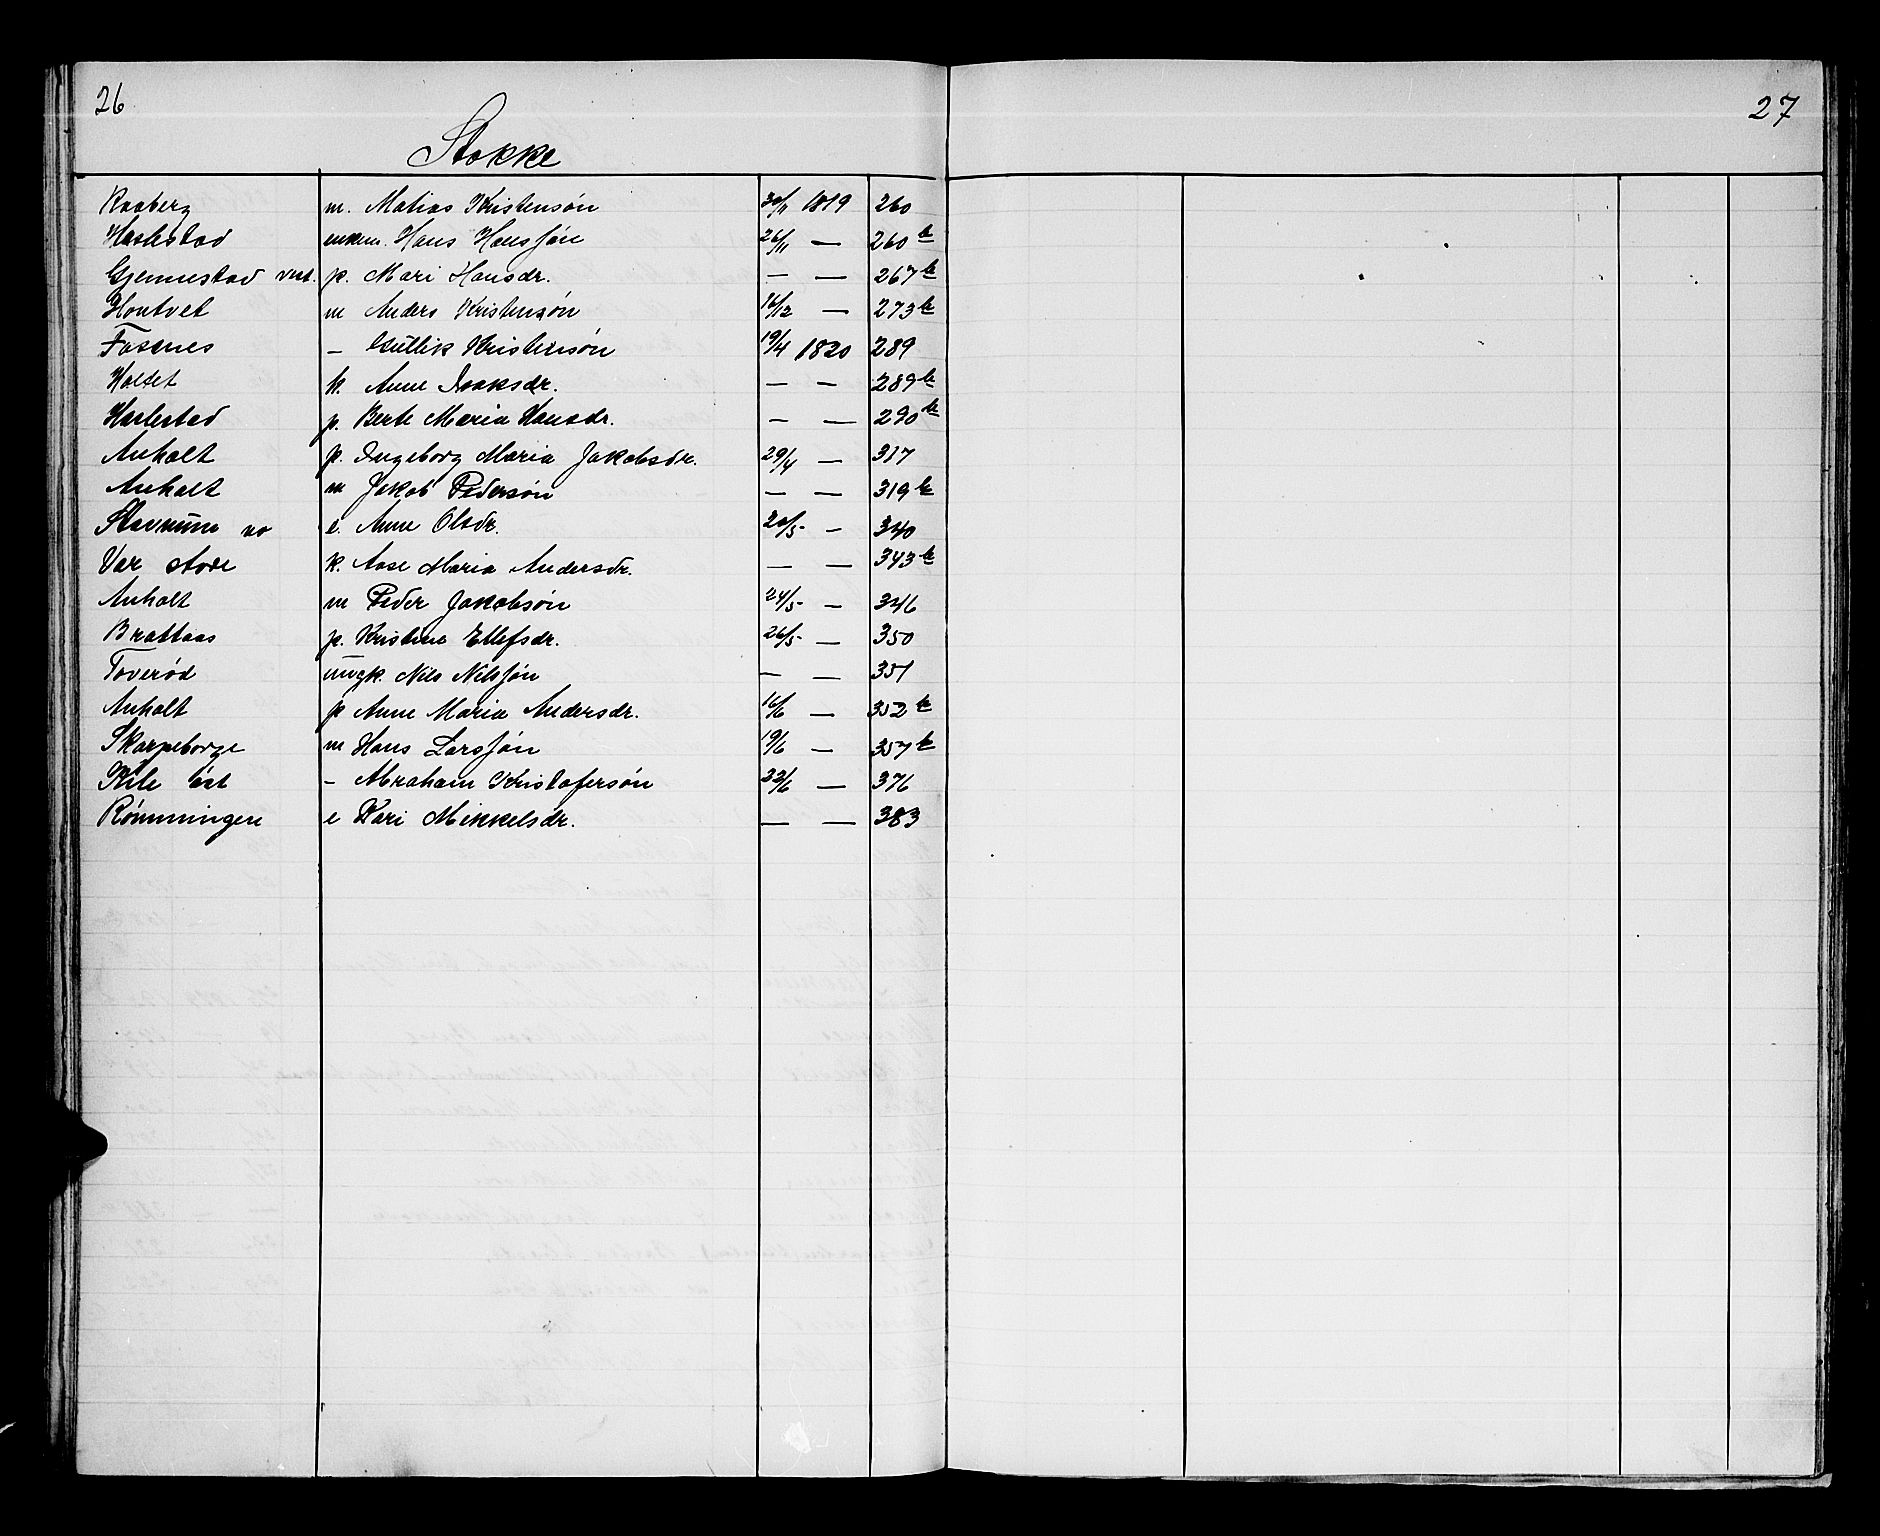 26
27
Stokke
Raaberg m. Matias Kristensøn 1819 260
Haslestad enkem. Hans Hanssøn 26/11 — 260 b
Gjennestad vest. p. Mari Hansdr. — — 267 b
Hontvet m Anders Kristensøn 16/12 — 273 b
Fossnes — Gullik Kristensøn 19/4 1820 289
Holtet k. Anne Isaksdr. — — 289 b
Haslestad p. Berte Maria Hansdr. — — 290 b
Anholt p. Ingeborg Maria Jakobsdr. 29/4 — 317
Anholt m Jakob Pedersøn — — 319 b
Stavnum no e. Anne Olsdr. 20/5 — 340
Var store k. Aase Maria Andersdr. — — 343 b
Anholt m Peder Jakobsøn 24/5 — 346
Brattaas p. Kristine Ellefsdr. 26/5 — 350
Toverød ungk. Nils Nilssøn — — 351
Anholt p Anne Maria Andersdr. 16/6 — 352 b
Skarpeborge m Hans Larssøn 19/6 — 357 b
Kile øst — Abraham Kristofersøn 22/6 — 376
Rømmingen e Kari Mikkelsdr. — — 383